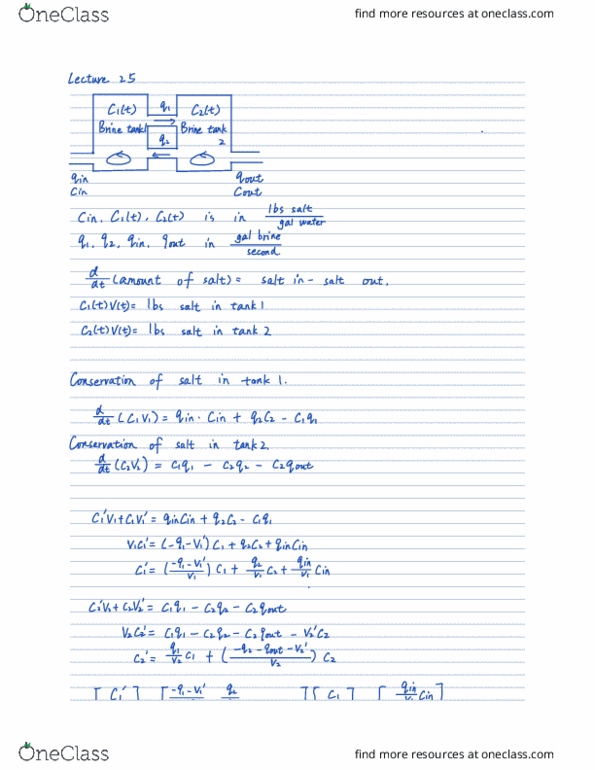 OneClass
find more resources at oneclass.com
Lecture 25
C₁(t) q₁ C₂(t)
Brine tank 1 q₂ Brine tank 2
qin qout
Cin Cout
Cin, C₁(t), C₂(t) is in lbs salt / gal water
q₁, q₂, qin, qout in gal brine / second
d/dt (amount of salt) = salt in - salt out.
C₁(t)V(t) = lbs salt in tank 1
C₂(t)V(t) = lbs salt in tank 2
Conservation of salt in tank 1.
d/dt (C₁V₁) = qin · Cin + q₂C₂ - C₁q₁
Conservation of salt in tank 2.
d/dt (C₂V₂) = C₁q₁ - C₂q₂ - C₂qout
C₁'V₁ + C₁V₁' = qinCin + q₂C₂ - C₁q₁
V₁C₁' = (-q₁-V₁')C₁ + q₂C₂ + qinCin
C₁' = ((-q₁-V₁')/V₁) C₁ + (q₂/V₁) C₂ + (qin/V₁) Cin
C₂'V₁ + C₂V₂' = C₁q₁ - C₂q₂ - C₂qout
V₂C₂' = C₁q₁ - C₂q₂ - C₂qout - V₂'C₂
C₂' = (q₁/V₂) C₁ + ((-q₂-qout-V₂')/V₂) C₂
[ C₁' ] [ -q₁-V₁' q₂ ] [ C₁ ] [ qin/V₁ Cin ]
OneClass
find more resources at oneclass.com